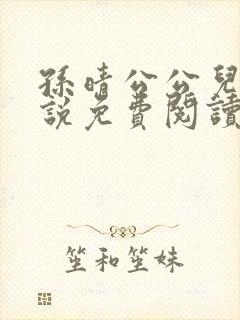 孫晴公公兒
說免費閱讀
笙和笙妹